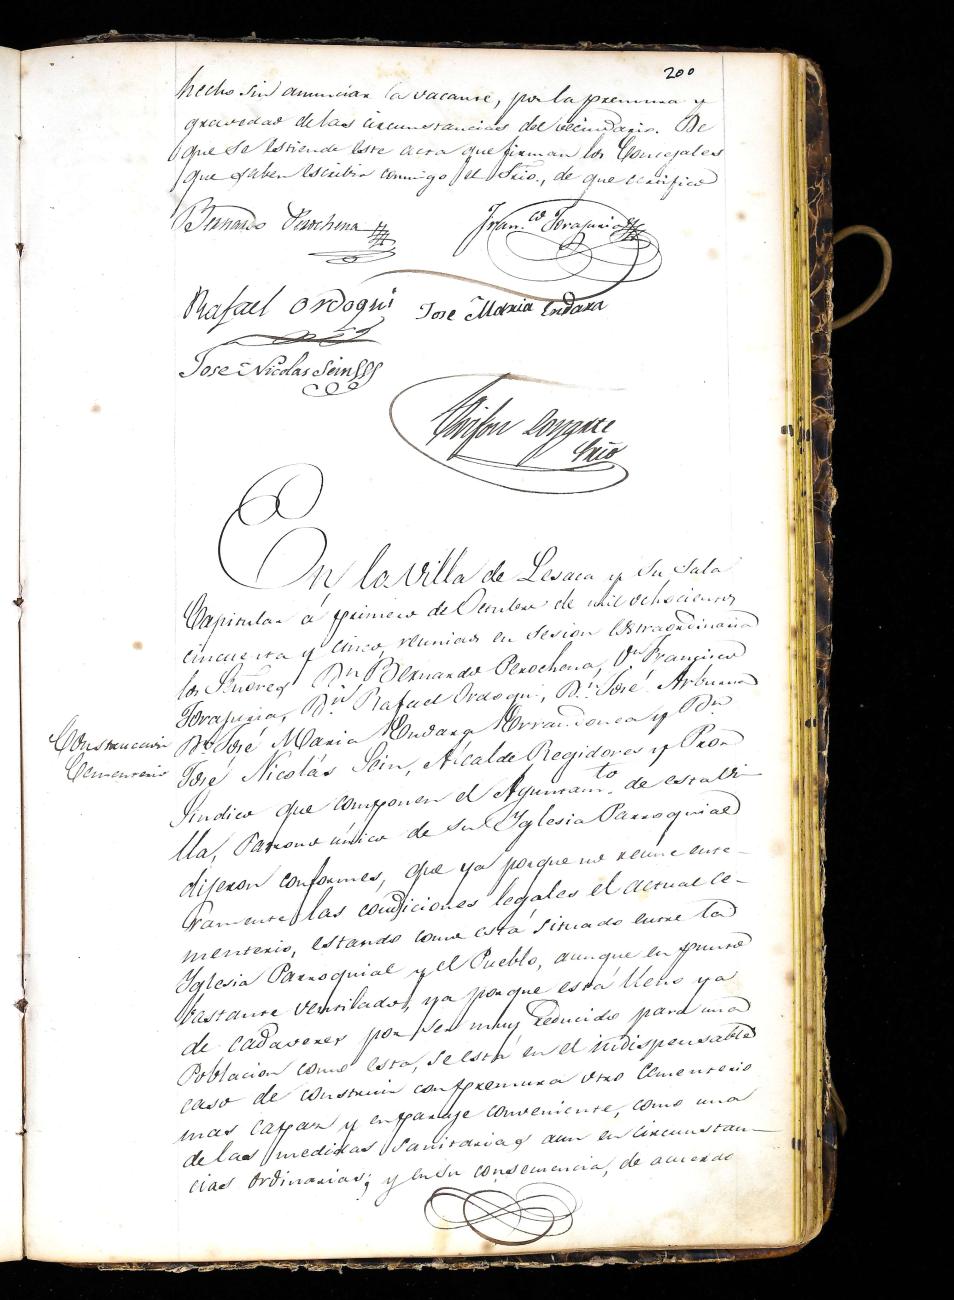 200
hecho sin anunciar la vacante, por la premura y
gravedad de las circunstancias del vecindario. De
que se estiende este acta que firman los Concejales
que saben escribir conmigo el Srio., de que certifico
Bernardo Perochena
Fran.co Terapuria
Rafael Ordoqui
Jose Maria Endara
Jose Nicolas Sein
Srio
En la villa de Lesaca y su sala
Capitular á primero de Octubre de mil ochocientos
cincuenta y cinco reunidos en sesion Estraordinaria
los Señores Dn Bernardo Perochena, Dn Francisco
Terapuria, Dn Rafael Ordoqui, Dn José Arburua
Dn José Maria Endara Errandonea y Dn
José Nicolás Sein, Alcalde Regidores y Pror
Sindico que componen el Ayuntamto de esta Vi-
lla, Patrono único de su Yglesia Parroquial
dijeron conformes, que ya porque no reune ente-
ramente las condiciones legales el actual Ce-
menterio, estando como está situado entre la
Yglesia Parroquial y el Pueblo, aunque en punto
bastante ventilado, ya porque está lleno ya
de cadaveres por ser muy reducido para una
Poblacion como esta, se está en el indispensable
caso de construir con premura otro Cementerio
mas capaz y en paraje conveniente, como una
de las medidas sanitarias aun en circunstan-
cias ordinarias; y en su consecuencia, de acuerdo
Construccion
Cementerio